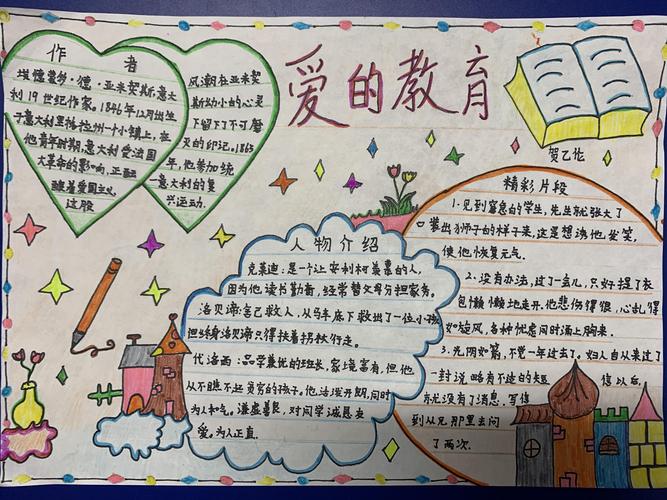 爱的教育
贺乙伦
作者
埃德蒙多·德·亚米契斯意大
利19世纪作家。1846年10月出生
于意大利里格拉州一个小镇上,在
他青年时期,意大利受法国
大革命的影响,正酝
酿着爱国主义,
这股
风潮在亚米契
斯幼小的心灵
下留下了不可磨
灭的印记。1865
年,他参加统
意大利的复
兴运动。
人物介绍
克莱迪:是一个让安利柯羡慕的人,
因为他读书勤奋,经常替父母分担家务。
洛贝谛:舍己救人,从马车底下救出了一位小孩
但终身洛贝谛只得扶着拐杖行走。
代洛西:品学兼优的班长,家境富有,但他
从不瞧不起贫穷的孩子。他活泼开朗,同时
为人和气。谦虚善良,对同学诚恳友
爱。为人正直.
精彩片段
1.见到窘急的学生,先生就张大了
口装出狮子的样子来,这是想诱他发笑,
使他恢复元气.
2.没有办法,过了一会儿,只好捏了衣
包懒懒地走开.他悲伤得很,心乱得
如旋风,各种忧虑同时涌上胸来.
3.光阴如箭,不觉一年过去了。妇人自从来了
一封说略有不适的短信以后,
亦就没有了消息,写信
到从兄那里去问
了两次.